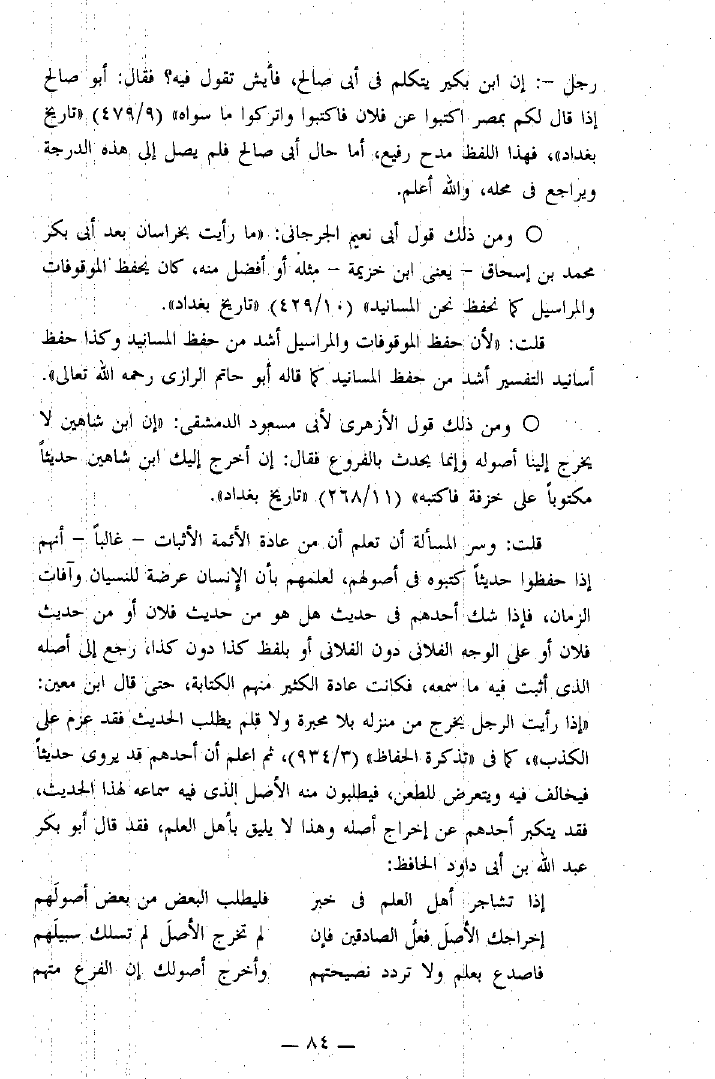 رجل -: إن ابن بكير يتكلم فى أبى صالح، فأيش تقول فيه؟ فقال: أبو صالح
إذا قال لكم بمصر اكتبوا عن فلان فاكتبوا واتركوا ما سواه» (٤٧٩/٩) «تاريخ
بغداد»، فهذا اللفظ مدح رفيع، أما حال أبى صالح فلم يصل إلى هذه الدرجة
ويراجع فى محله، والله أعلم.
○ ومن ذلك قول أبى نعيم الجرجانى: «ما رأيت بخراسان بعد أبى بكر
محمد بن إسحاق - يعنى ابن خزيمة - مثله أو أفضل منه، كان يحفظ الموقوفات
والمراسيل كما نحفظ نحن المسانيد» (٤٢٩/١٠) «تاريخ بغداد».
قلت: «لأن حفظ الموقوفات والمراسيل أشد من حفظ المسانيد وكذا حفظ
أسانيد التفسير أشد من حفظ المسانيد كما قاله أبو حاتم الرازى رحمه الله تعالى».
○ ومن ذلك قول الأزهرى لأبى مسعود الدمشقى: «إن ابن شاهين لا
يخرج إلينا أصوله وإنما يحدث بالفروع فقال: إن أخرج إليك ابن شاهين حديثاً
مكتوباً على خزفة فاكتبه» (٢٦٨/١١) «تاريخ بغداد».
قلت: وسر المسألة أن تعلم أن من عادة الأئمة الأثبات - غالباً - أنهم
إذا حفظوا حديثاً كتبوه فى أصولهم، لعلمهم بأن الإنسان عرضة للنسيان وآفات
الزمان، فإذا شك أحدهم فى حديث هل هو من حديث فلان أو من حديث
فلان أو على الوجه الفلانى دون الفلانى أو بلفظ كذا دون كذا، رجع إلى أصله
الذى أثبت فيه ما سمعه، فكانت عادة الكثير منهم الكتابة، حتى قال ابن معين:
«إذا رأيت الرجل يخرج من منزله بلا محبرة ولا قلم يطلب الحديث فقد عزم على
الكذب»، كما فى «تذكرة الحفاظ» (٩٣٤/٣)، ثم اعلم أن أحدهم قد يروى حديثاً
فيخالف فيه ويتعرض للطعن، فيطلبون منه الأصل الذى فيه سماعه لهذا الحديث،
فقد يتكبر أحدهم عن إخراج أصله وهذا لا يليق بأهل العلم، فقد قال أبو بكر
عبد الله بن أبى داود الحافظ:
إذا تشاجر أهل العلم فى خبر فليطلب البعض من بعض أصولَهم
إخراجك الأصلَ فعلُ الصادقين فإن لم تخرج الأصلَ لم تسلك سبيلَهم
فاصدع بعلم ولا تردد نصيحتهم وأخرج أصولك إن الفرع منهم
— ٨٤ —